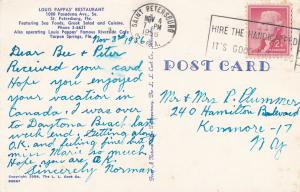 LOUIS PAPPAS' RESTAURANT
1088 Pasadena Ave., So.
St. Petersburg, Fla.
Featuring Sea Foods, Greek Salad and Cuisine.
Also operating Louis Pappas' Famous Riverside Cafe
Tarpon Springs, Fla.
Nov 3rd 1956
Dear Bee + Peter
Received your card
Hope you enjoyed
your vacation in
Canada. I was over
to Daytona Beach last
week end. Getting along
O.K. and feeling fine but
miss Marie so much.
Hope you are O.K.
Sincerely Norman
POST CARD
SAINT PETERSBURG
NOV 4
PM
1956
FLA.
HIRE THE HANDICAPPED
IT'S GOOD
2¢
Mr & Mrs P. Plummer
240 Hamilton Boulevard
Kenmore-17
N.Y.
Copyright 2956, The L. L. Cook Co.